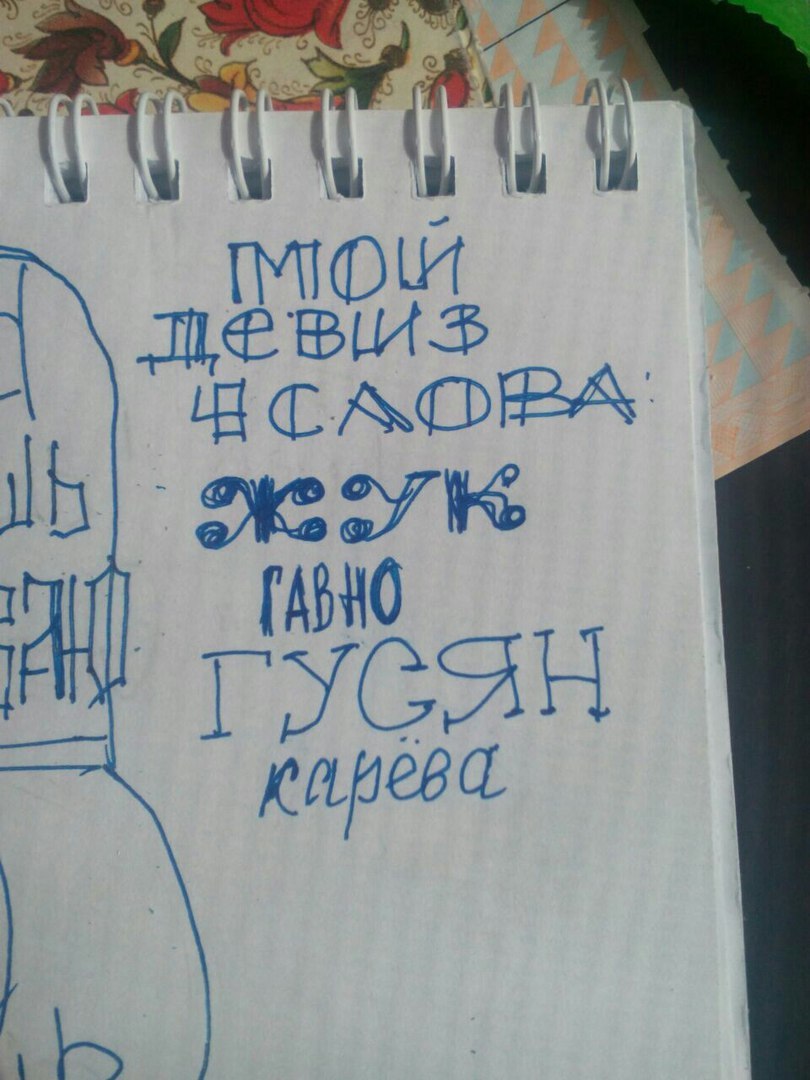 МОЙ
ДЕВИЗ
4 СЛОВА:
ЖУК
ГАВНО
ГУСЯН
карёва